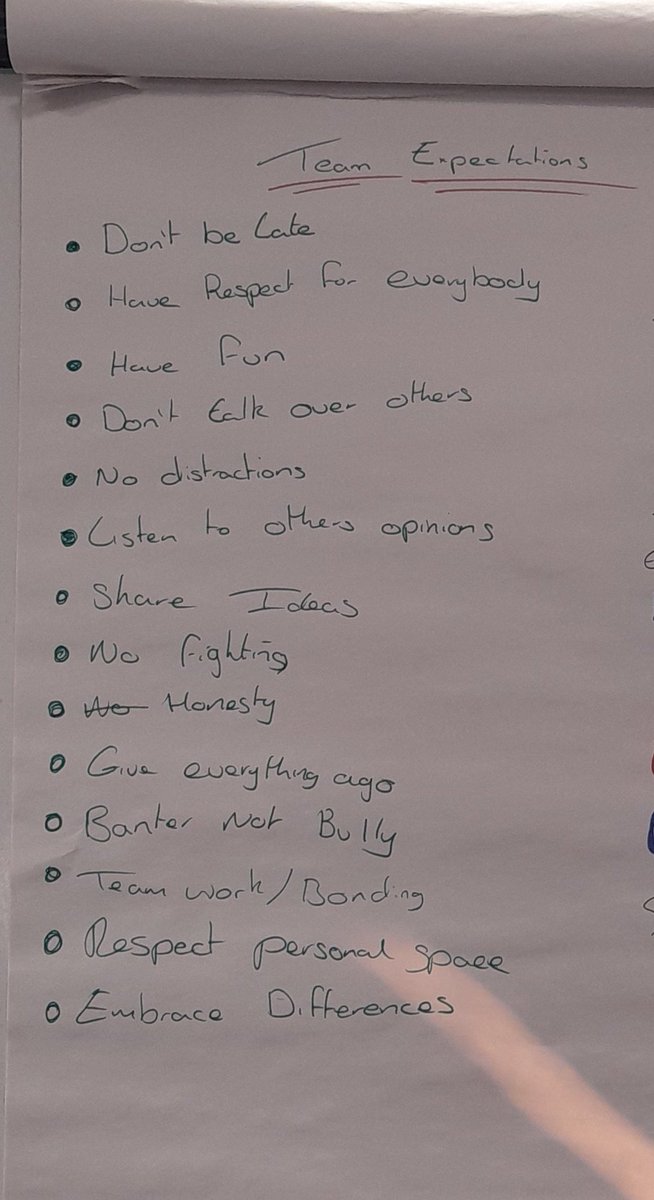 Team Expectations
• Don't be Late
• Have Respect for everybody
• Have Fun
• Don't talk over others
• No distractions
• Listen to others opinions
• Share Ideas
• No fighting
• No Honesty
• Give everything ago
• Banter Not Bully
• Team work/Bonding
• Respect personal space
• Embrace Differences